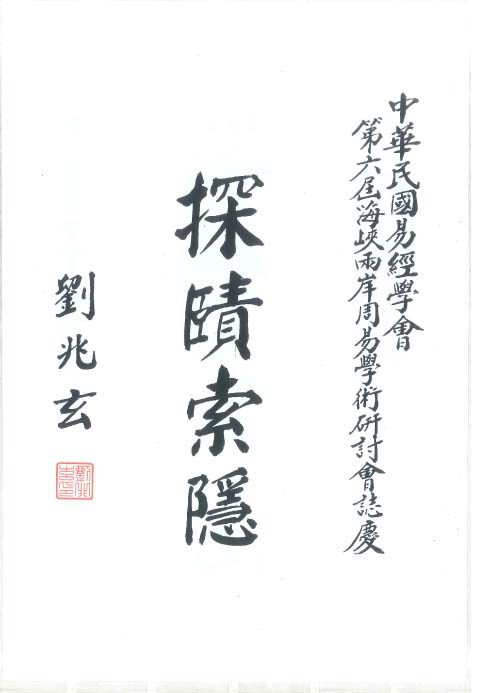 中華民國易經學會
第六屆海峽兩岸周易學術研討會誌慶
探賾索隱
劉兆玄